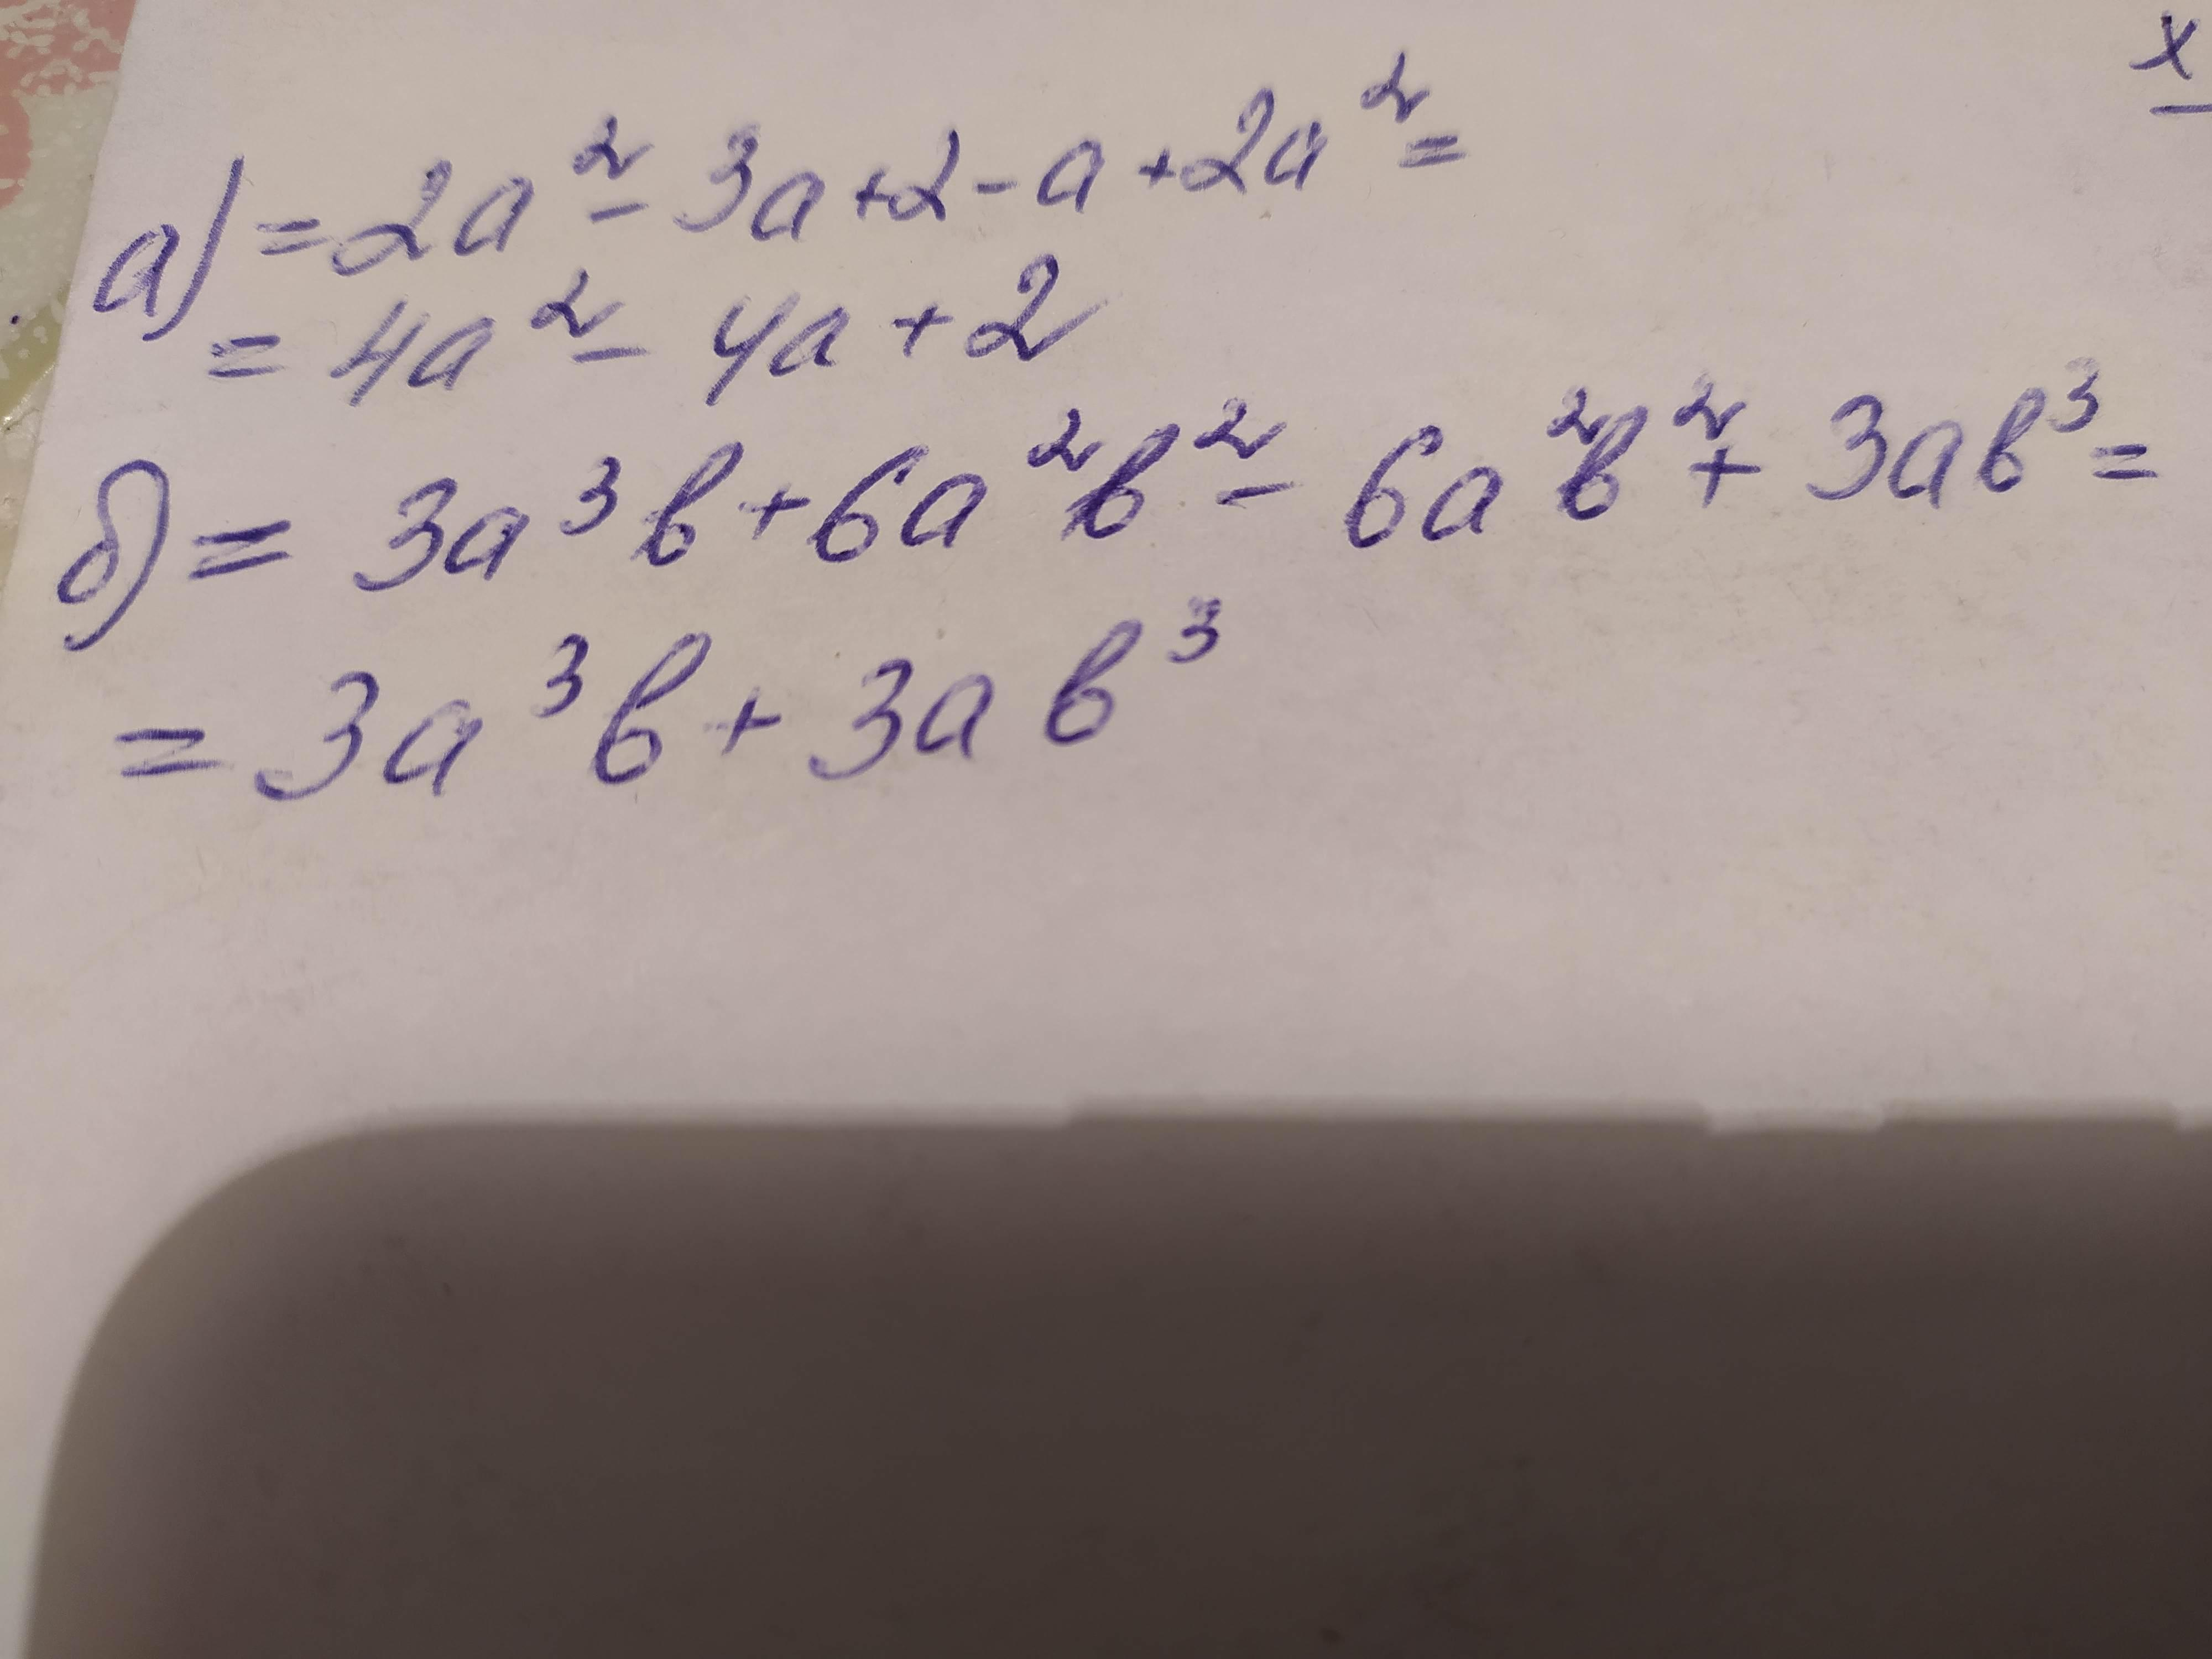 x
а) = 2a² - 3a + 2 - a + 2a² =
= 4a² - 4a + 2
б) = 3a³b + 6a²b² - 6a²b² + 3ab³ =
= 3a³b + 3ab³